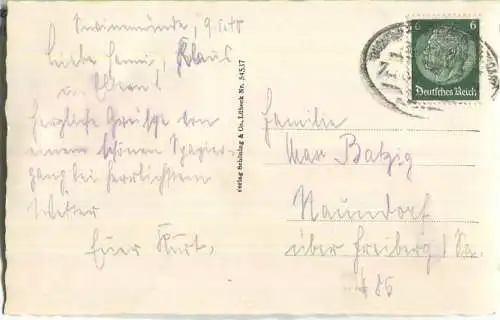 Swinemünde, 9.
Liebe Henni, Klaus
u. Eltern!
Herzliche Grüsse von
einem schönen Spazier-
gang bei herrlichstem
Wetter
Euer Kurt.
Verlag Schöning & Co., Lübeck Nr. 54537
6
Deutsches Reich
Familie
Max Batzig
Naundorf
über Freiberg/Sa.
86